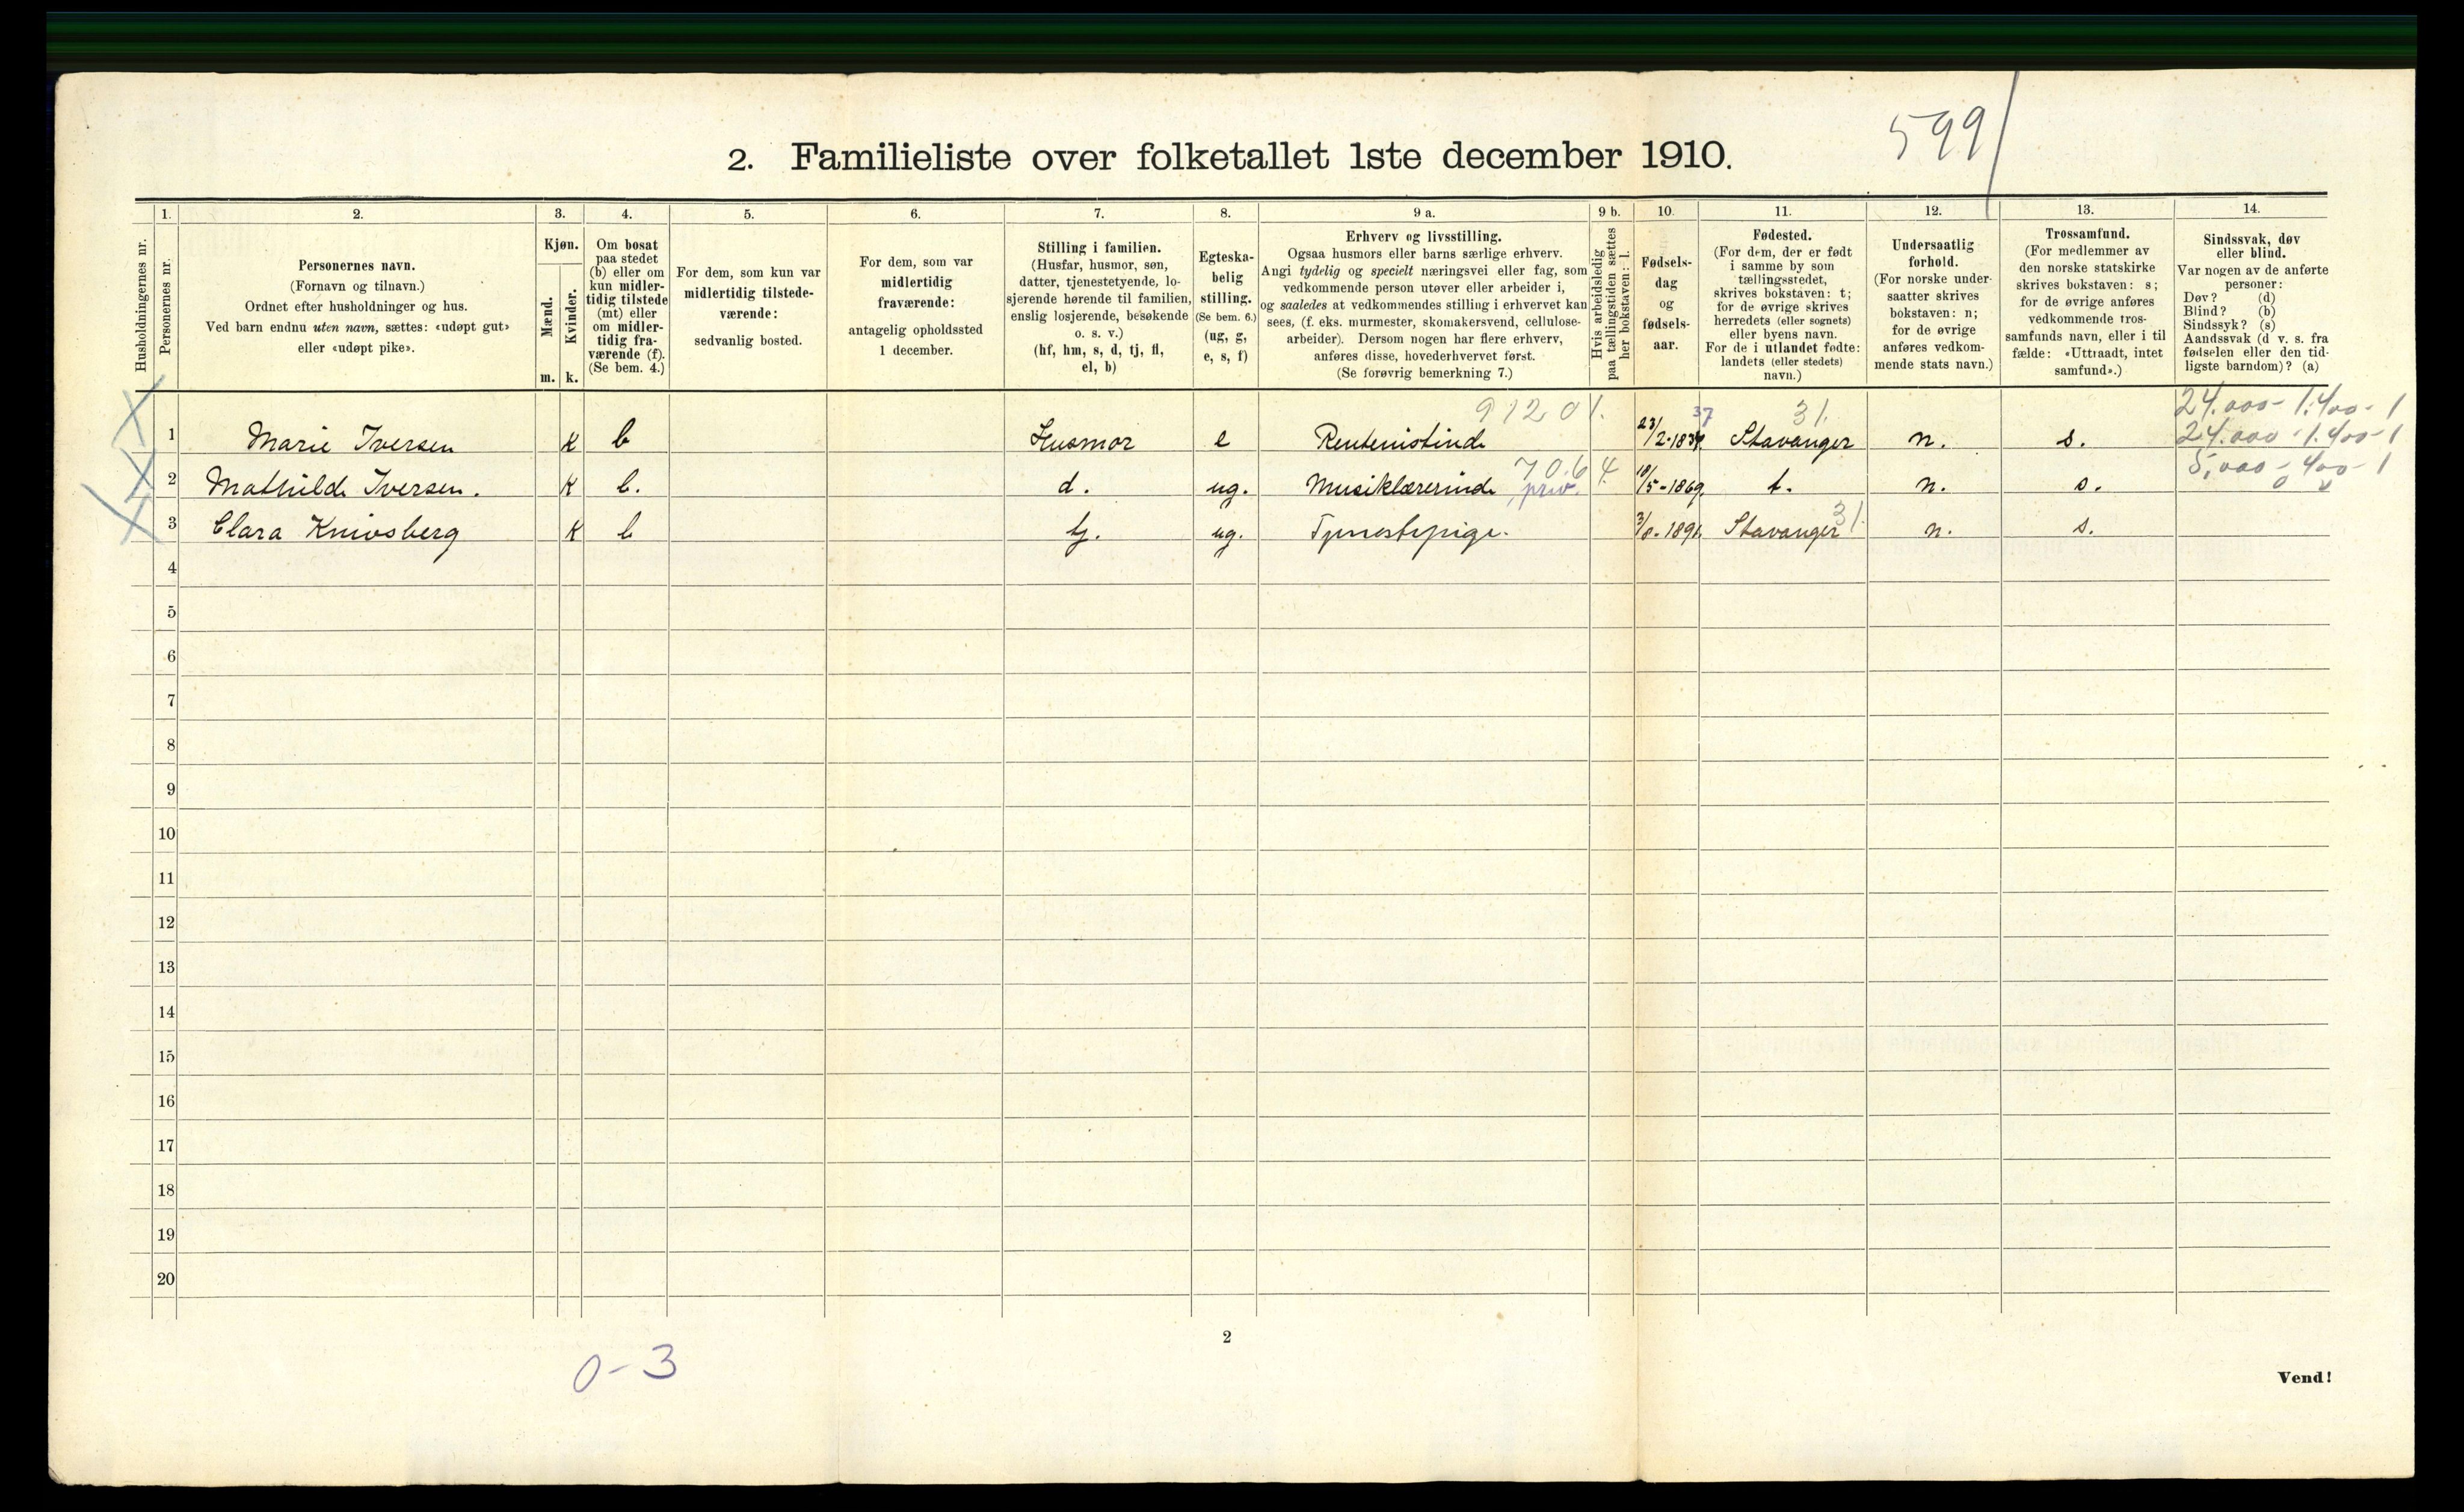 599/
2. Familieliste over folketallet 1ste december 1910.
1. 2. 3. 4. 5. 6. 7. 8. 9 a. 9 b. 10. 11. 12. 13. 14.
Husholdningernes nr.
Personernes nr.
Personernes navn.
(Fornavn og tilnavn.)
Ordnet efter husholdninger og hus.
Ved barn endnu uten navn, sættes: «udøpt gut»
eller «udøpt pike».
Kjøn.
Mænd.
Kvinder.
m. k.
Om bosat
paa stedet
(b) eller om
kun midler-
tidig tilstede
(mt) eller
om midler-
tidig fra-
værende (f).
(Se bem. 4.)
For dem, som kun var
midlertidig tilstede-
værende:
sedvanlig bosted.
For dem, som var
midlertidig
fraværende:
antagelig opholdssted
1 december.
Stilling i familien.
(Husfar, husmor, søn,
datter, tjenestetyende, lo-
sjerende hørende til familien,
enslig losjerende, besøkende
o. s. v.)
(hf, hm, s, d, tj, fl,
el, b)
Egteska-
belig
stilling.
(Se bem. 6.)
(ug, g,
e, s, f)
Erhverv og livsstilling.
Ogsaa husmors eller barns særlige erhverv.
Angi tydelig og specielt næringsvei eller fag, som
vedkommende person utøver eller arbeider i,
og saaledes at vedkommendes stilling i erhvervet kan
sees, (f. eks. murmester, skomakersvend, cellulose-
arbeider). Dersom nogen har flere erhverv,
anføres disse, hovederhvervet først.
(Se forøvrig bemerkning 7.)
Hvis arbeidsledig
paa tællingstiden sættes
her bokstaven: l.
Fødsels-
dag
og
fødsels-
aar.
Fødested.
(For dem, der er født
i samme by som
tællingsstedet,
skrives bokstaven: t;
for de øvrige skrives
herredets (eller sognets)
eller byens navn.
For de i utlandet fødte:
landets (eller stedets)
navn.)
Undersaatlig
forhold.
(For norske under-
saatter skrives
bokstaven: n;
for de øvrige
anføres vedkom-
mende stats navn.)
Trossamfund.
(For medlemmer av
den norske statskirke
skrives bokstaven: s;
for de øvrige anføres
vedkommende tros-
samfunds navn, eller i til
fælde: «Uttraadt, intet
samfund».)
Sindssvak, døv
eller blind.
Var nogen av de anførte
personer:
Døv? (d)
Blind? (b)
Sindssyk? (s)
Aandssvak (d v. s. fra
fødselen eller den tid-
ligste barndom)? (a)
9120 1. 37 31. 24.000 - 1.400 - 1
1 Marie Iversen K b Husmor e Rentenistinde 23/2-1837. Stavanger n. s. 24.000 - 1.400 - 1
7064 5,000 - 400 - 1
2 Mathilde Iversen. K b. d. ug. Musiklærerinde, priv. 10/5-1869. t. n. s.
31.
3 Clara Knivsberg K b tj. ug. Tjenestepige. 3/8-1891. Stavanger n. s.
4
5
6
7
8
9
10
11
12
13
14
15
16
17
18
19
20
2
0-3
Vend!